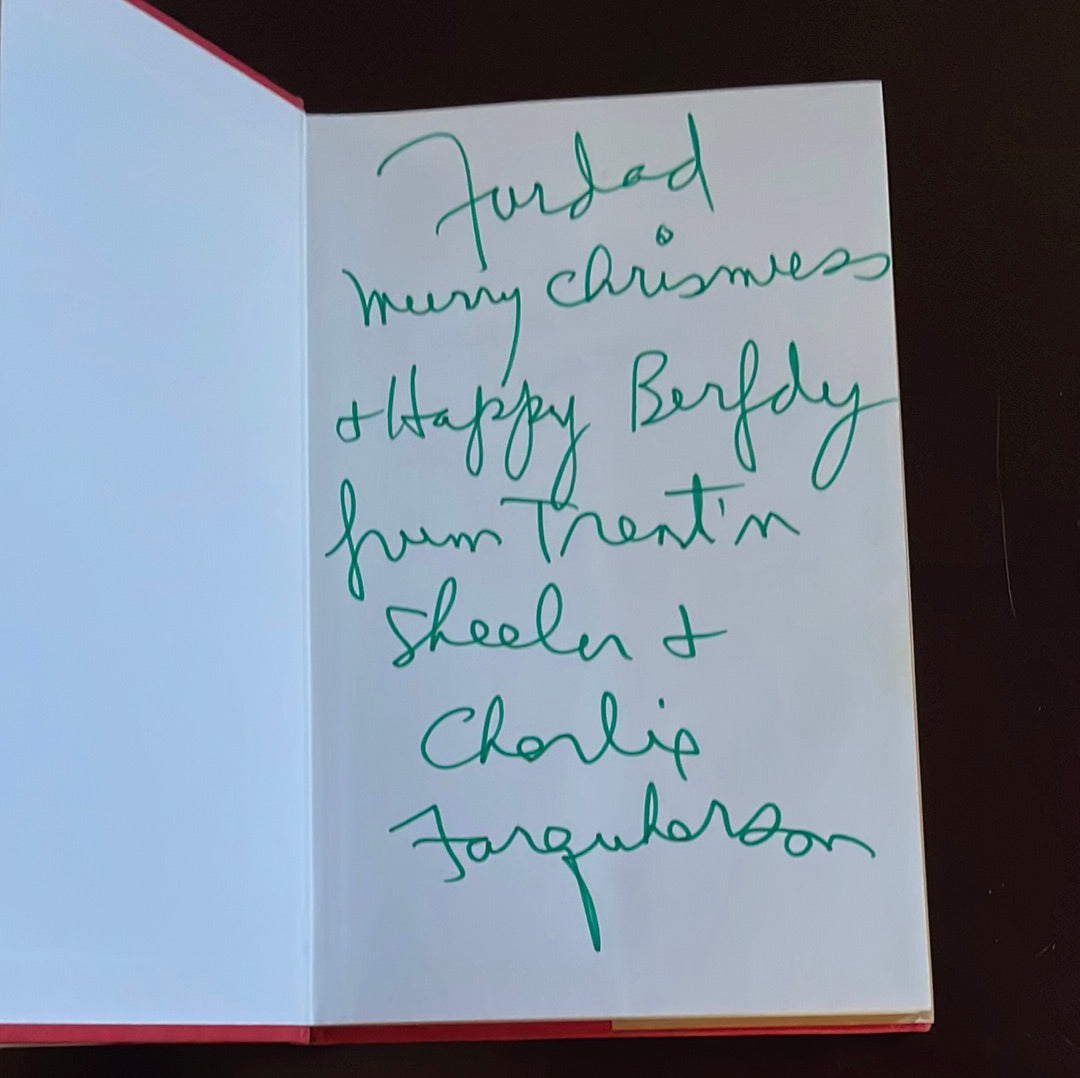 Furdad
Murry Chrismess
+ Happy Berfdy
frum Trent'n
Sheeler +
Charlie
Farquharson